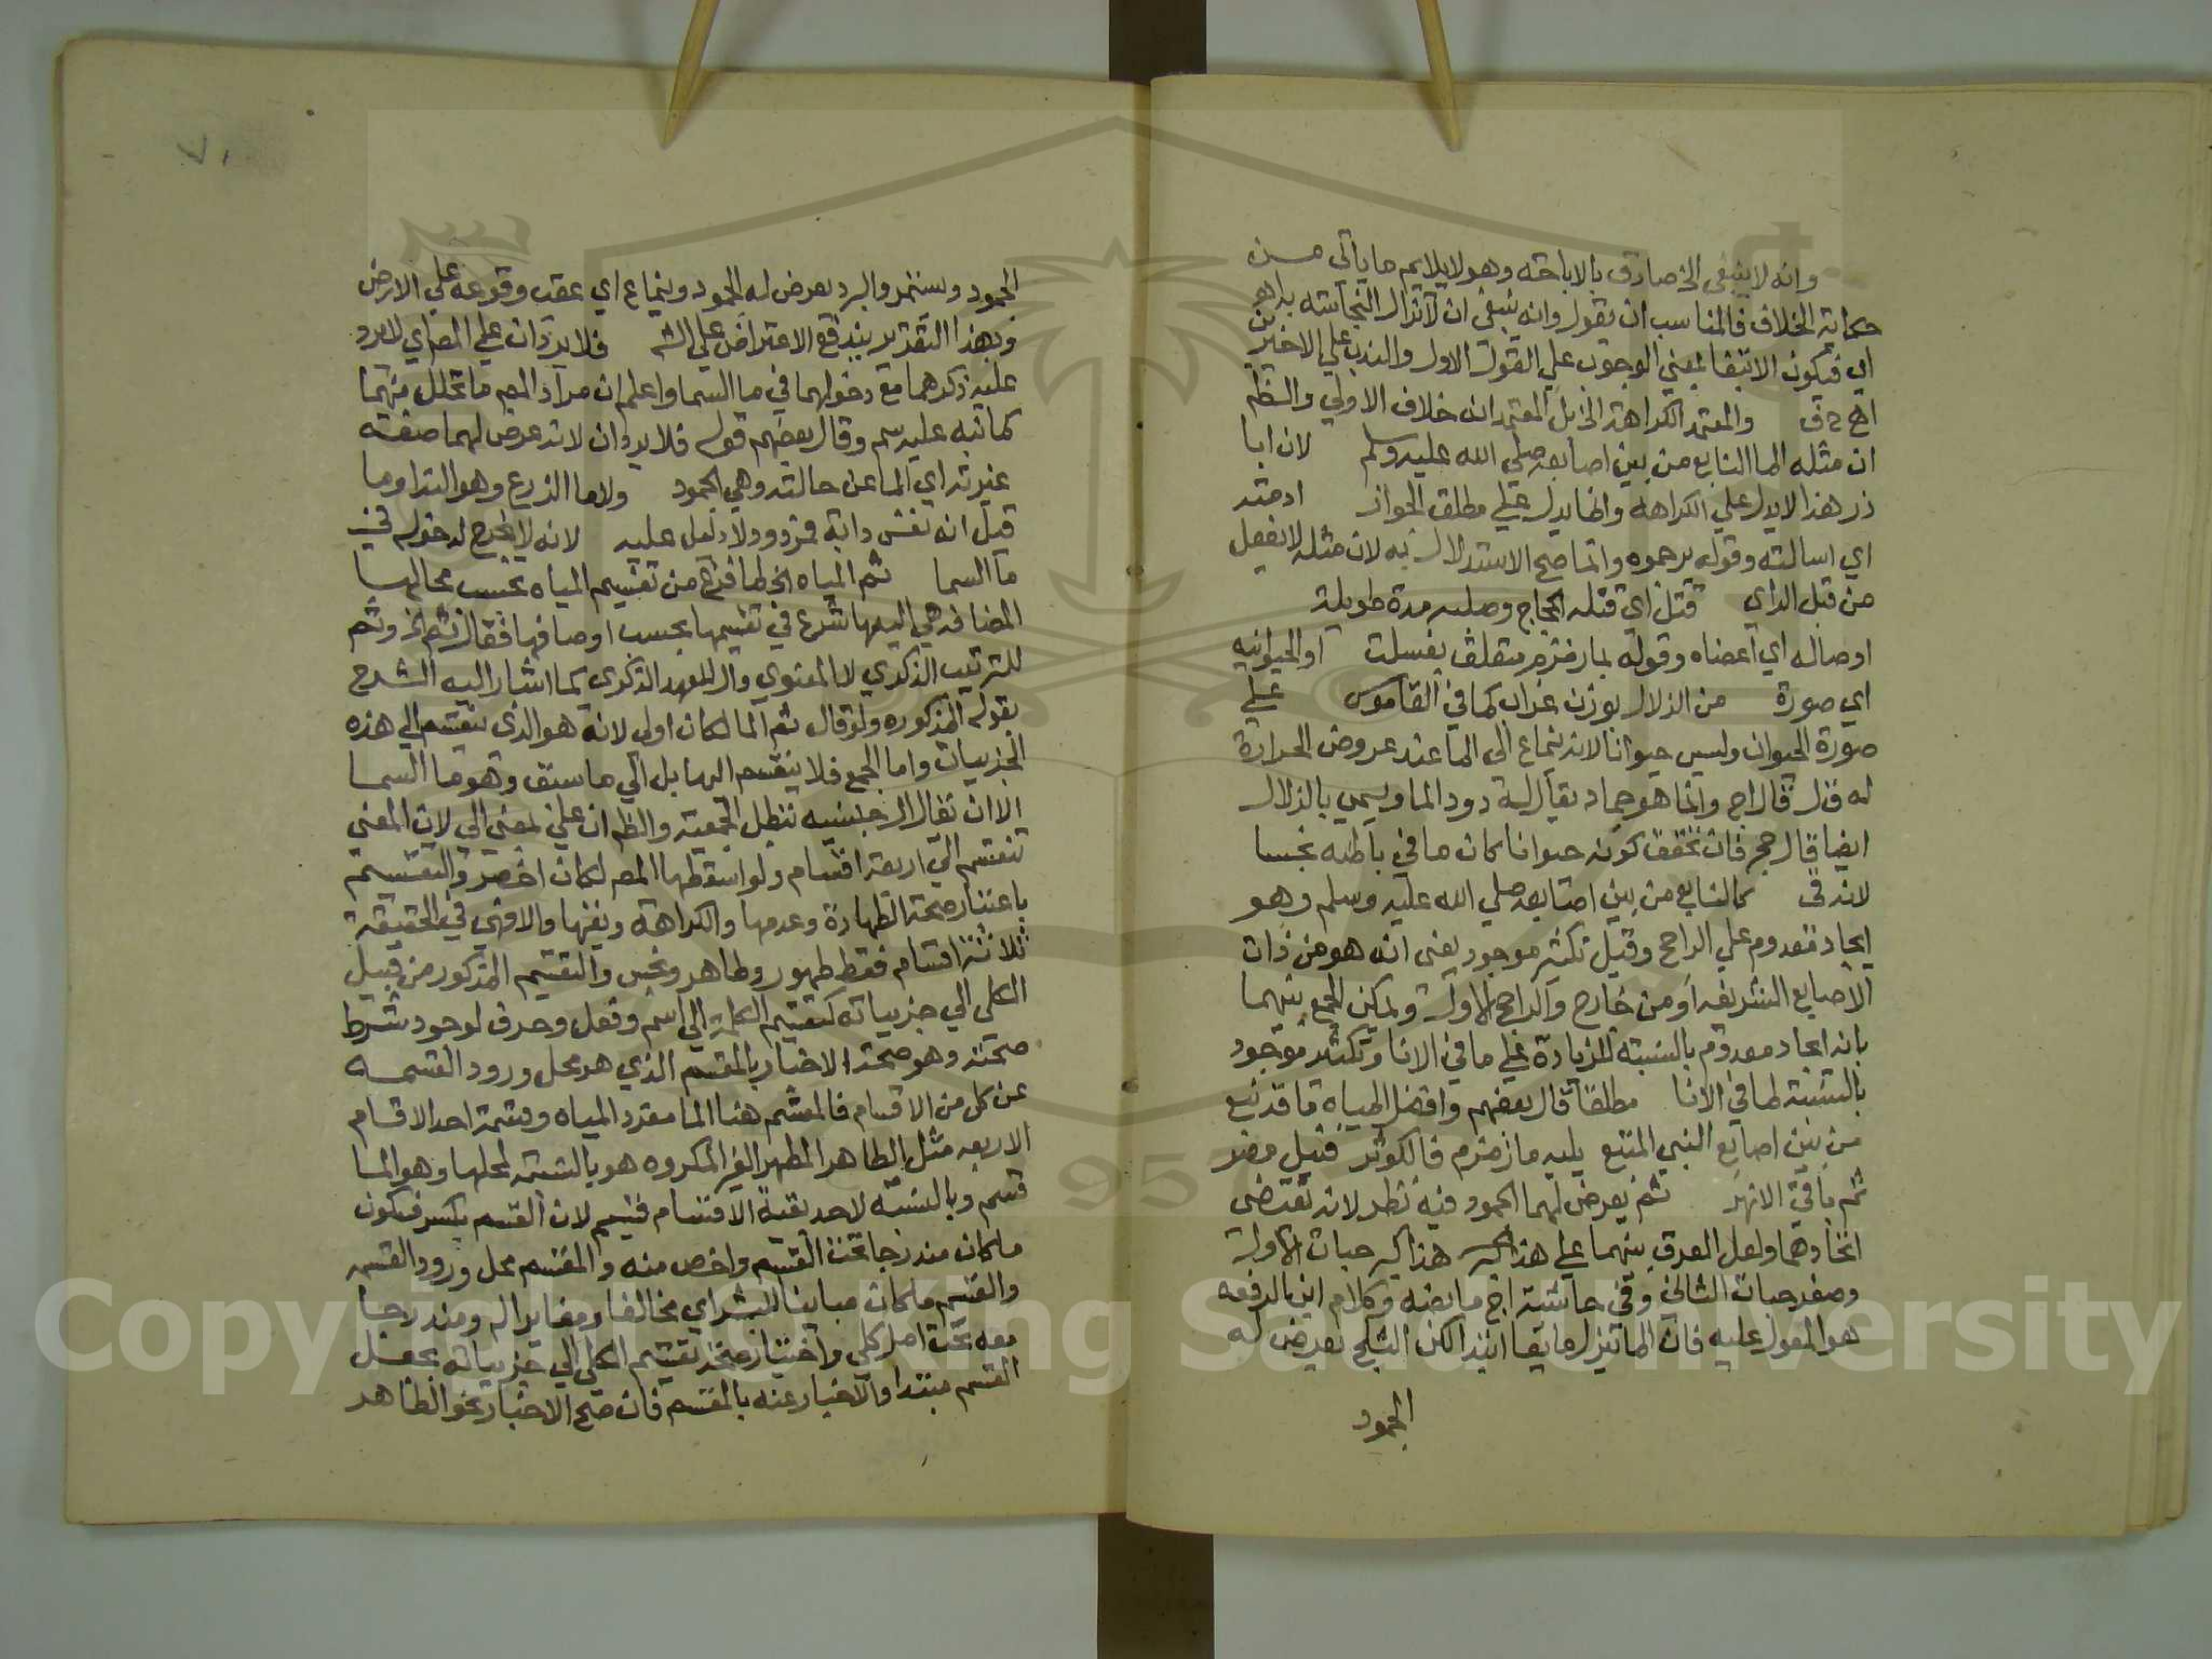 وانه لا ينبغي الخ صادق بالاباحته وهو لا يلايم ما يأتي من
حكاية الخلاف فالمناسب ان يقول وانه ينبغي ان لا تزال النجاسته به اهـ
اي فيكون الانتفا بمعني الوجوب علي القول الاول والندب علي الاخرين
اهـ والمعتمد الكراهة الخ بل المعتمد انه خلاف الاولي والظم
ان مثله الما النابع من بين اصابعه صلي الله عليه وسلم لان ابا
ذر هذا لا يدل علي الكراهة وانما يدل علي مطلق الجواز ادمته
اي اسالته وقوله يرموه وانما صح الاستدلال به لان مثله لا يفعل
من قبل الراي قتل اي قتله الحجاج وصلبه مدة طويلة
اوصاله اي اعضاه وقوله بما زمزم متعلق بغسلت او الحيوانيه
اي صورة من الزلال بوزن غراب كما في القاموس علي
صورة الحيوان وليس حيوانا لانه ينماع الي الما عند عروض الحرارة
له قال اج وانما هو جماد يقال له دود الما ويسمي بالزلال
ايضا قال حجر فان تحقق كونه حيوانا كان ما في باطنه نجسا
لانه في كالنابع من بين اصابعه صلي الله عليه وسلم وهو
ايجاد معدوم علي الراجح وقيل تكثير موجود يعني انه هو من ذات
الاصابع الشريفه او من خارج والراجح الاول ويمكن الجمع بينهما
بانه ايجاد معدوم بالنسبته للزيادة علي ما في الانا وتكثير موجود
بالنسبته لما في الانا مطلقا قال بعضهم وافضل المياه ما قد نبع
من بين اصابع النبي المتبع يليه ما زمزم فالكوثر فنيل مصر
ثم باقي الانهر ثم يعرض لهما الجمود فيه نظر لانه يقتضي
اتحادهما ولعل الفرق بينهما علي هذا كبر حبات الاول
وصغر حبات الثاني وفي حاشية اج ما نصه وكلام ابن الرفعه
هو المعول عليه فان الما تنزل مايعا اليذا لكن الثلج يعرض له
الجمود
الجمود ويستمر والبرد يعرض له الجمود وينماع اي عقب وقوعه علي الارض
وبهذا التقدير يندفع الاعتراض علي الشـ فلا يردان علي المصـ اي لا يرد
عليه ذكرهما مع دخولهما في ما السما واعلم ان مراد المصـ ما تحلل منهما
كما نبه عليه سم وقال بعضهم قوله فلا يردان لانه عرض لهما صفته
غيرته اي الما عن حالته وهي الجمود ولا ما الزرع وهو الندا وما
قيل انه نفس دابة فمردود لا دليل عليه لانه لا يخرج لدخوله في
ما السما ثم المياه الخ لما فرغ من تقسيم المياه بحسب محالها
المضافه هي اليها شرع في تقسيمها بحسب اوصافها فقال ثم الخ وثم
للترتيب الذكري لا المعنوي وال للعهد الذكري كما اشار اليه الشرح
بقوله المذكوره ولو قال ثم الما لكان اولي لانه هو الذي ينقسم الي هذه
الجزييات واما الجمع فلا ينقسم اليها بل الي ما سبق وهو ما السما
الا ان يقال ال جنسيه تبطل الجمعية والظم ان علي بمعني الي لان المعني
تنقسم الي اربعة اقسام ولو اسقطها المصـ لكان اخصر والتقسيم
باعتبار صحة الطهارة وعدمها والكراهة ونفيها والا فهي في الحقيقة
ثلاثة اقسام فقط طهور وطاهر ونجس والتقسيم المذكور من قبيل
الكلي الي جزيياته كتقسيم الكلمة الي اسم وفعل وحرف لوجود شرط
صحته وهو صحة الاخبار بالمقسم الذي هو محل ورود القسمه
عن كل من الاقسام فالمقسم هنا الما مفرد المياه وقسمة احد الاقسام
الاربعه مثل الطاهر المطهر الغير المكروه هو بالنسبته لمحلها وهو الما
قسم وبالنسبه لاحد بقية الاقسام قسيم لان القسم بكسر فسكون
ما كان مندرجا تحت القسيم واخص منه والمقسم محل ورود القسمه
والقسيم ما كان مباينا للشي اي مخالفا ومغايرا له ومندرجا
معه تحت اصل كلي واختبار صحة تقسيم الكلي الي جزيياته بجعل
القسم مبتدا والاخبار عنه بالمقسم فان صح الاخبار نحو الطاهر
٧١
Copyright © King Saud University
1957